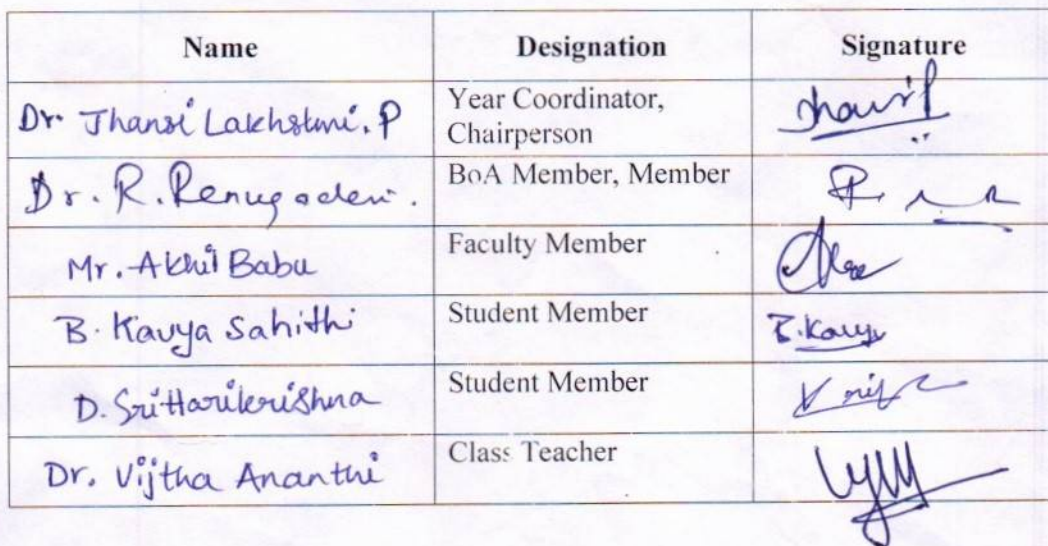 Name Designation Signature
Dr. Jhansi Lakhstmi. P Year Coordinator,
Chairperson
Dr. R. Renugadevi. BoA Member, Member
Mr. Akhil Babu Faculty Member
B. Kavya Sahithi Student Member B.Kavya
D. SriHarikrishna Student Member
Dr. Vijtha Ananthi Class Teacher